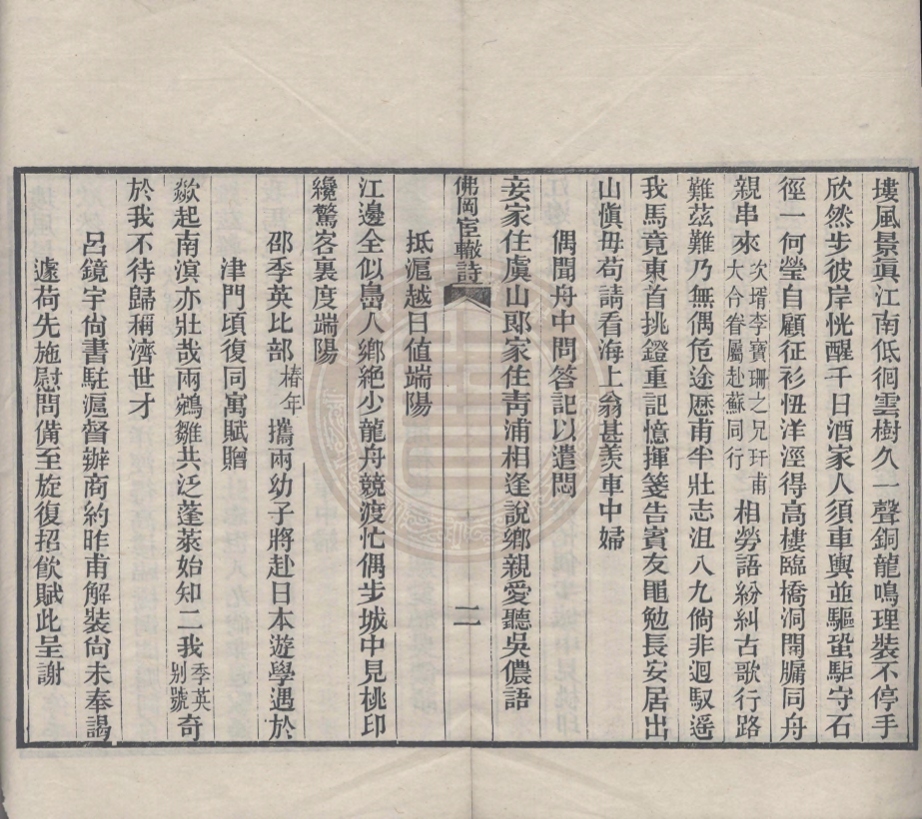 塿風景眞江南低徊雲樹久一聲銅龍鳴理裝不停手
欣然步彼岸恍醒千日酒家人須車輿並驅蛩駏守石
徑一何瑩自顧征衫忸洋涇得高樓臨橋洞開牖同舟
親串來次壻李寶珊之兄玕甫大令眷屬赴蘇同行相勞語紛糾古歌行路
難茲難乃無偶危途歷甫半壯志沮八九倘非迴馭遥
我馬竟東首挑鐙重記憶揮箋告賓友黽勉長安居出
山愼毋苟請看海上翁甚羨車中婦
偶聞舟中問答記以遣悶
妾家住虞山郎家住靑浦相逢說鄉親愛聽吳儂語
佛岡宦轍詩 二
抵滬越日值端陽
江邊全似島人鄉絶少龍舟競渡忙偶步城中見桃印
纔驚客裏度端陽
邵季英比部椿年攜兩幼子將赴日本遊學遇於
津門頃復同寓賦贈
歘起南溟亦壯哉兩鵷雛共泛蓬萊始知二我季英别號奇
於我不待歸稱濟世才
呂鏡宇尙書駐滬督辦商約昨甫解裝尙未奉謁
遽荷先施慰問備至旋復招飮賦此呈謝